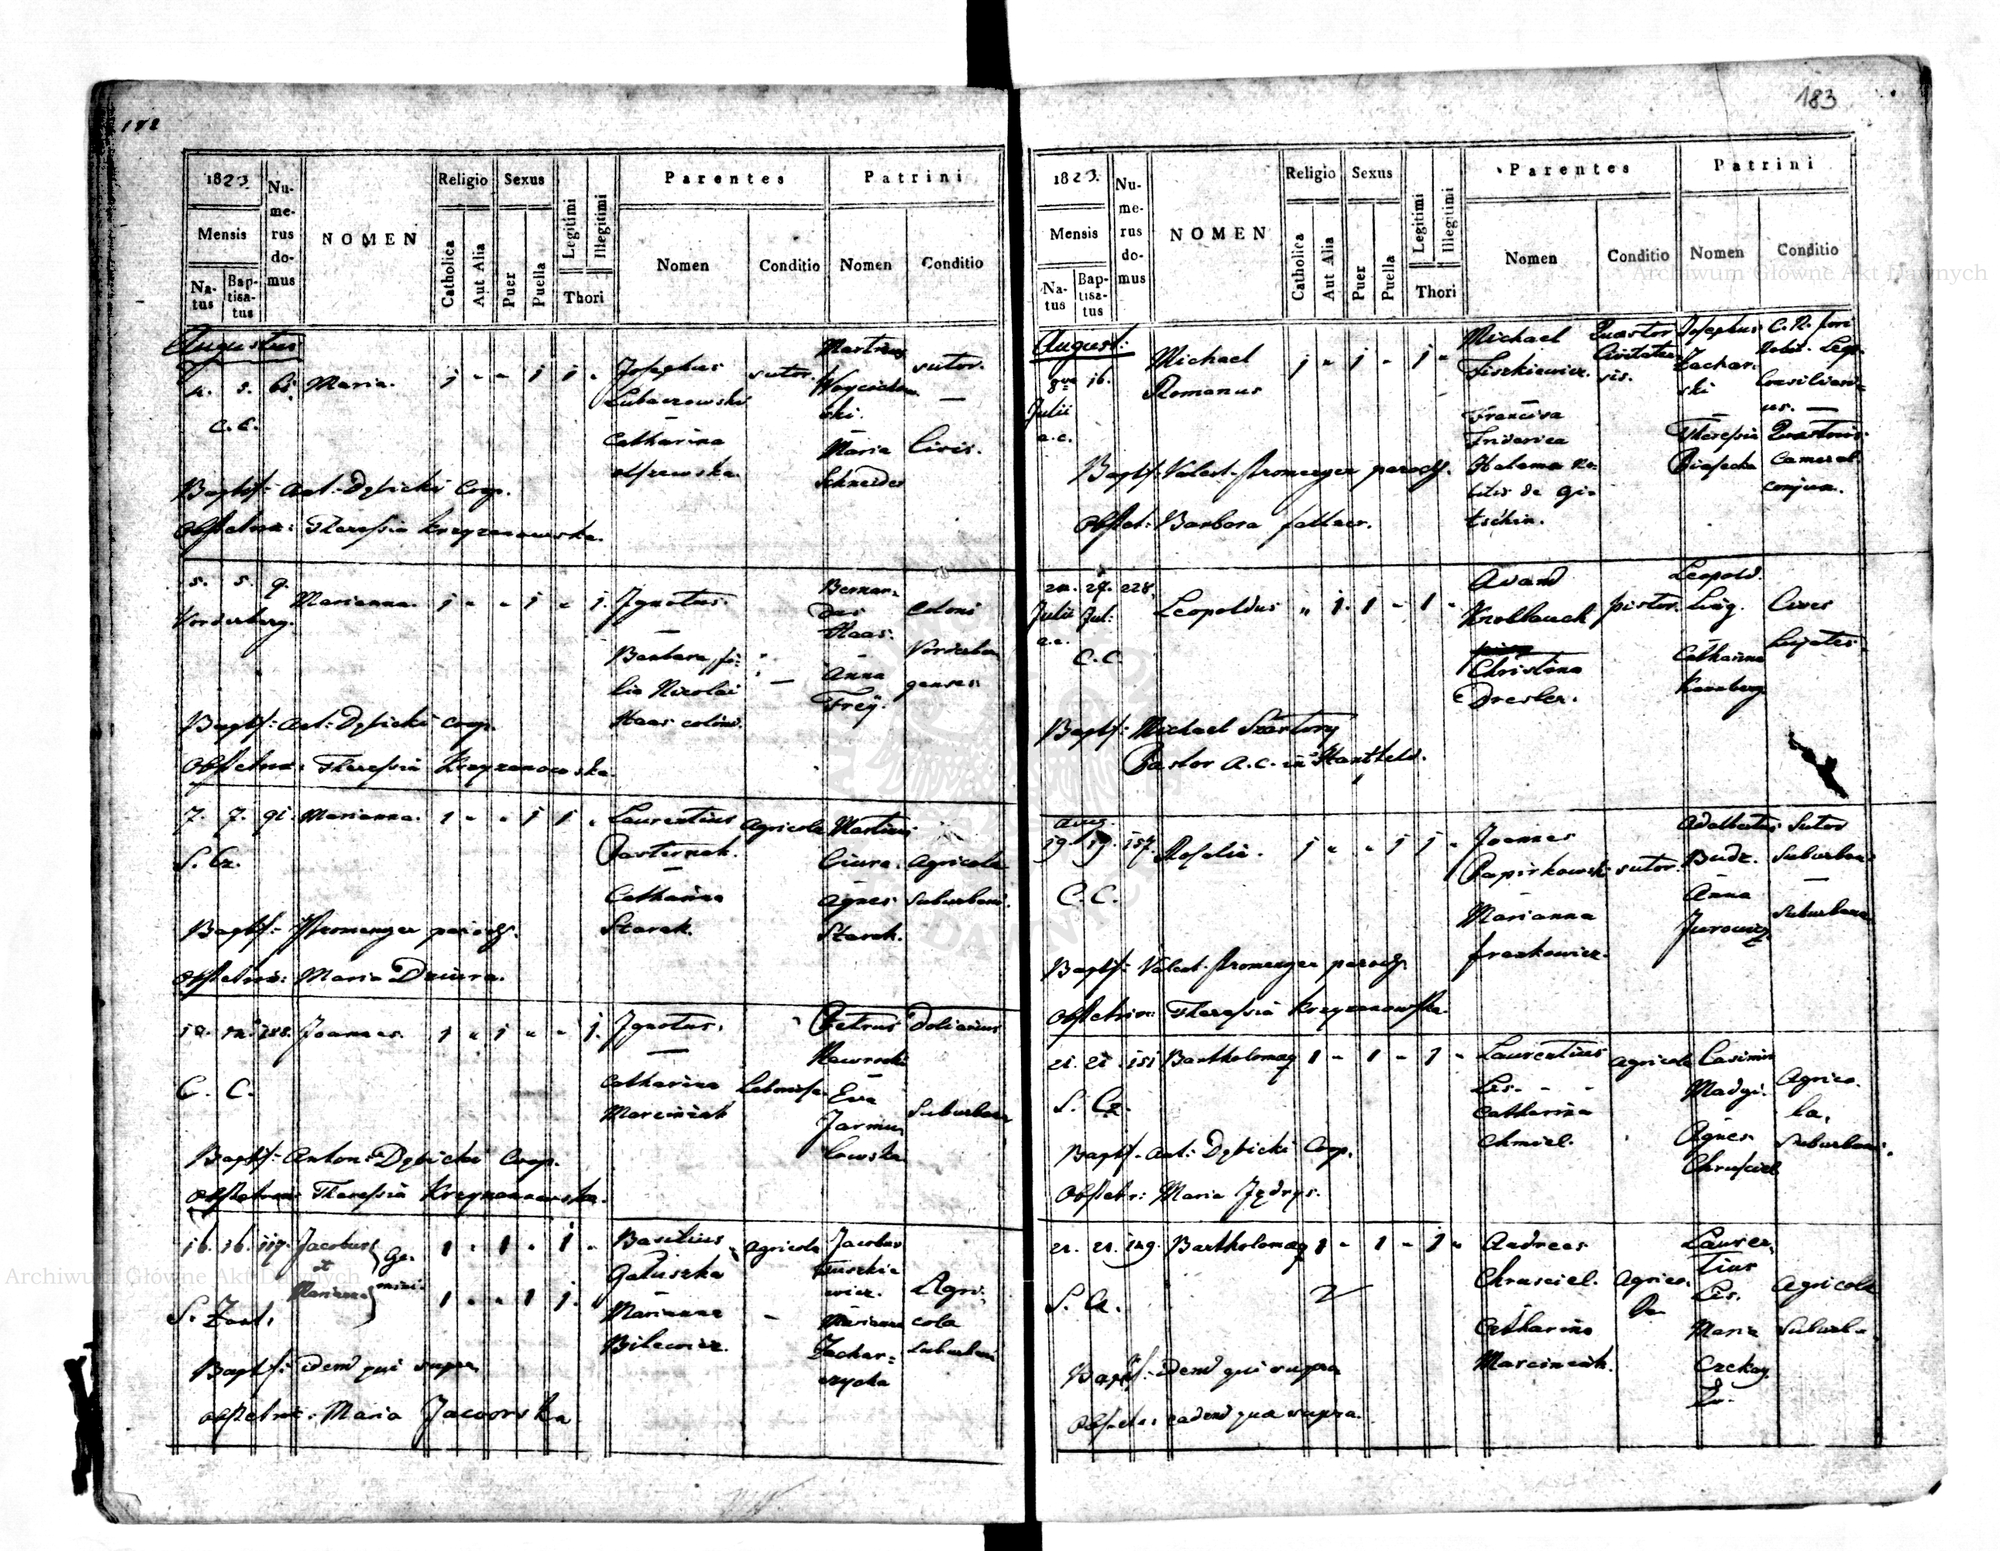 182
1823
Mensis
Natus
Baptisatus
Numerus domus
NOMEN
Religio
Catholica
Aut Alia
Sexus
Puer
Puella
Legitimi
Illegitimi
Thori
Parentes
Nomen
Conditio
Patrini
Nomen
Conditio
Augustus
4. 5. Maria. 1 " " 1 1 "
C. C.
Josephus
Lubaczowski
Catharina
sutor.
Martinus
Woyciechow
ski.
Maria
Schneider
sutor.
Civis.
Baptis: Ant: Dębicki Coop.
Obstetrix: Theressia Krzyzanowska.
5. 5. 9. Marianna. 1 " " 1 " 1.
Vorderberg.
Ignotus.
Barbara fi-
lia Nicolai
Haas colon.
Bernar-
dus
Haas.
Anna
Frey.
Coloni
Vorderber
genses
Baptis: Ant: Dębicki Coop.
Obstetrix: Theressia Krzyzanowska
7. 7. 91. Marianna. 1 " " 1 1 "
S. Cz.
Laurentius
Pasternak.
Catharina
Starak.
Agricola
Martinus
Ciura.
Agnes
Starak.
Agricola
Suburbani.
Baptis: Stromenger paroch.
Obstetrix: Maria Dziura.
12. 12. 188. Joannes. 1 " 1 " " 1.
C. C.
Ignotus.
Catharina
Marciniak
Petrus
Nawrocki
Eva
Jarmu
lowska
Doliarius
Suburbani
Baptis: Anton: Dębicki Coop.
Obstetrix: Theressia Krzyzanowska.
16. 16. 117. Jacobus
et
Marianna
Ge-
mini.
1 " 1 " 1 "
1 " " 1 1.
Basilius
Galuszka
Marianna
Bilewicz.
Agricola
Jacobus
wicz.
Marianna
Zachar=
zycka
Agri-
cola
Suburbani
Baptis: idem qui supra
Obstetrix: Maria Jaworska
183
1823.
Mensis
Natus
Baptisatus
Numerus domus
NOMEN
Religio
Catholica
Aut Alia
Sexus
Puer
Puella
Legitimi
Illegitimi
Thori
Parentes
Nomen
Conditio
Patrini
Nomen
Conditio
August:
16.
Julii
a.c.
Michael
Romanus
1 " 1 " 1 "
Michael
Fiszkiewicz.
Francisca
Friderica
Halama no-
bilis de Gi-
tschin.
Quaestor
Civitaten
sis.
Josephus
Zachar-
ski
Theressia
Piasecka
C. R. Fori
Nobil. Leop.
Consiliari=
us.
Quaestoris
Cameral
conjux.
Baptis: Valent. Stromenger paroch.
Obstet: Barbara
27. 228.
Julii Jul:
a.c.
C. C.
Leopoldus " 1. 1 " 1 "
Knoblauch
Christina
Dresler.
pistor.
Leopold.
Catharina
Cives
hujates.
Baptis: Michael
Pastor A.C. in
Aug.
19. 19. 157. Rosalia. 1 " " 1 1 "
C. C.
Joannes
Papirkowski
Marianna
Frankowicz.
sutor.
Adalbertus
Budz.
Anna
Jurowicz.
Sutor
Suburbani
Suburbana
Baptis: Valent. Stromenger paroch.
Obstetrix: Theressia Krzyzanowska
21. 21. 151 Bartholomaeus 1 " 1 " 1 "
S. Cz.
Laurentius
Lis.
Catharina
Chmiel.
Agricola
Casimir
Madyi.
Agnes
Chrusciel
Agrico-
la.
Suburbani.
Baptis. Ant: Dębicki Coop.
Obstetr: Maria Jędrys.
21. 21. 129. Bartholomaeus 1 " 1 " 1 "
S. Cz.
Andreas
Chrusciel.
Catharina
Marciniak.
Agrico-
la
Lauren-
tius
Lis.
Maria
Agricola
Suburba.
Baptis: idem qui supra
Obstetr: eadem quae supra.
Archiwum Główne Akt Dawnych
Archiwum Główne Akt Dawnych